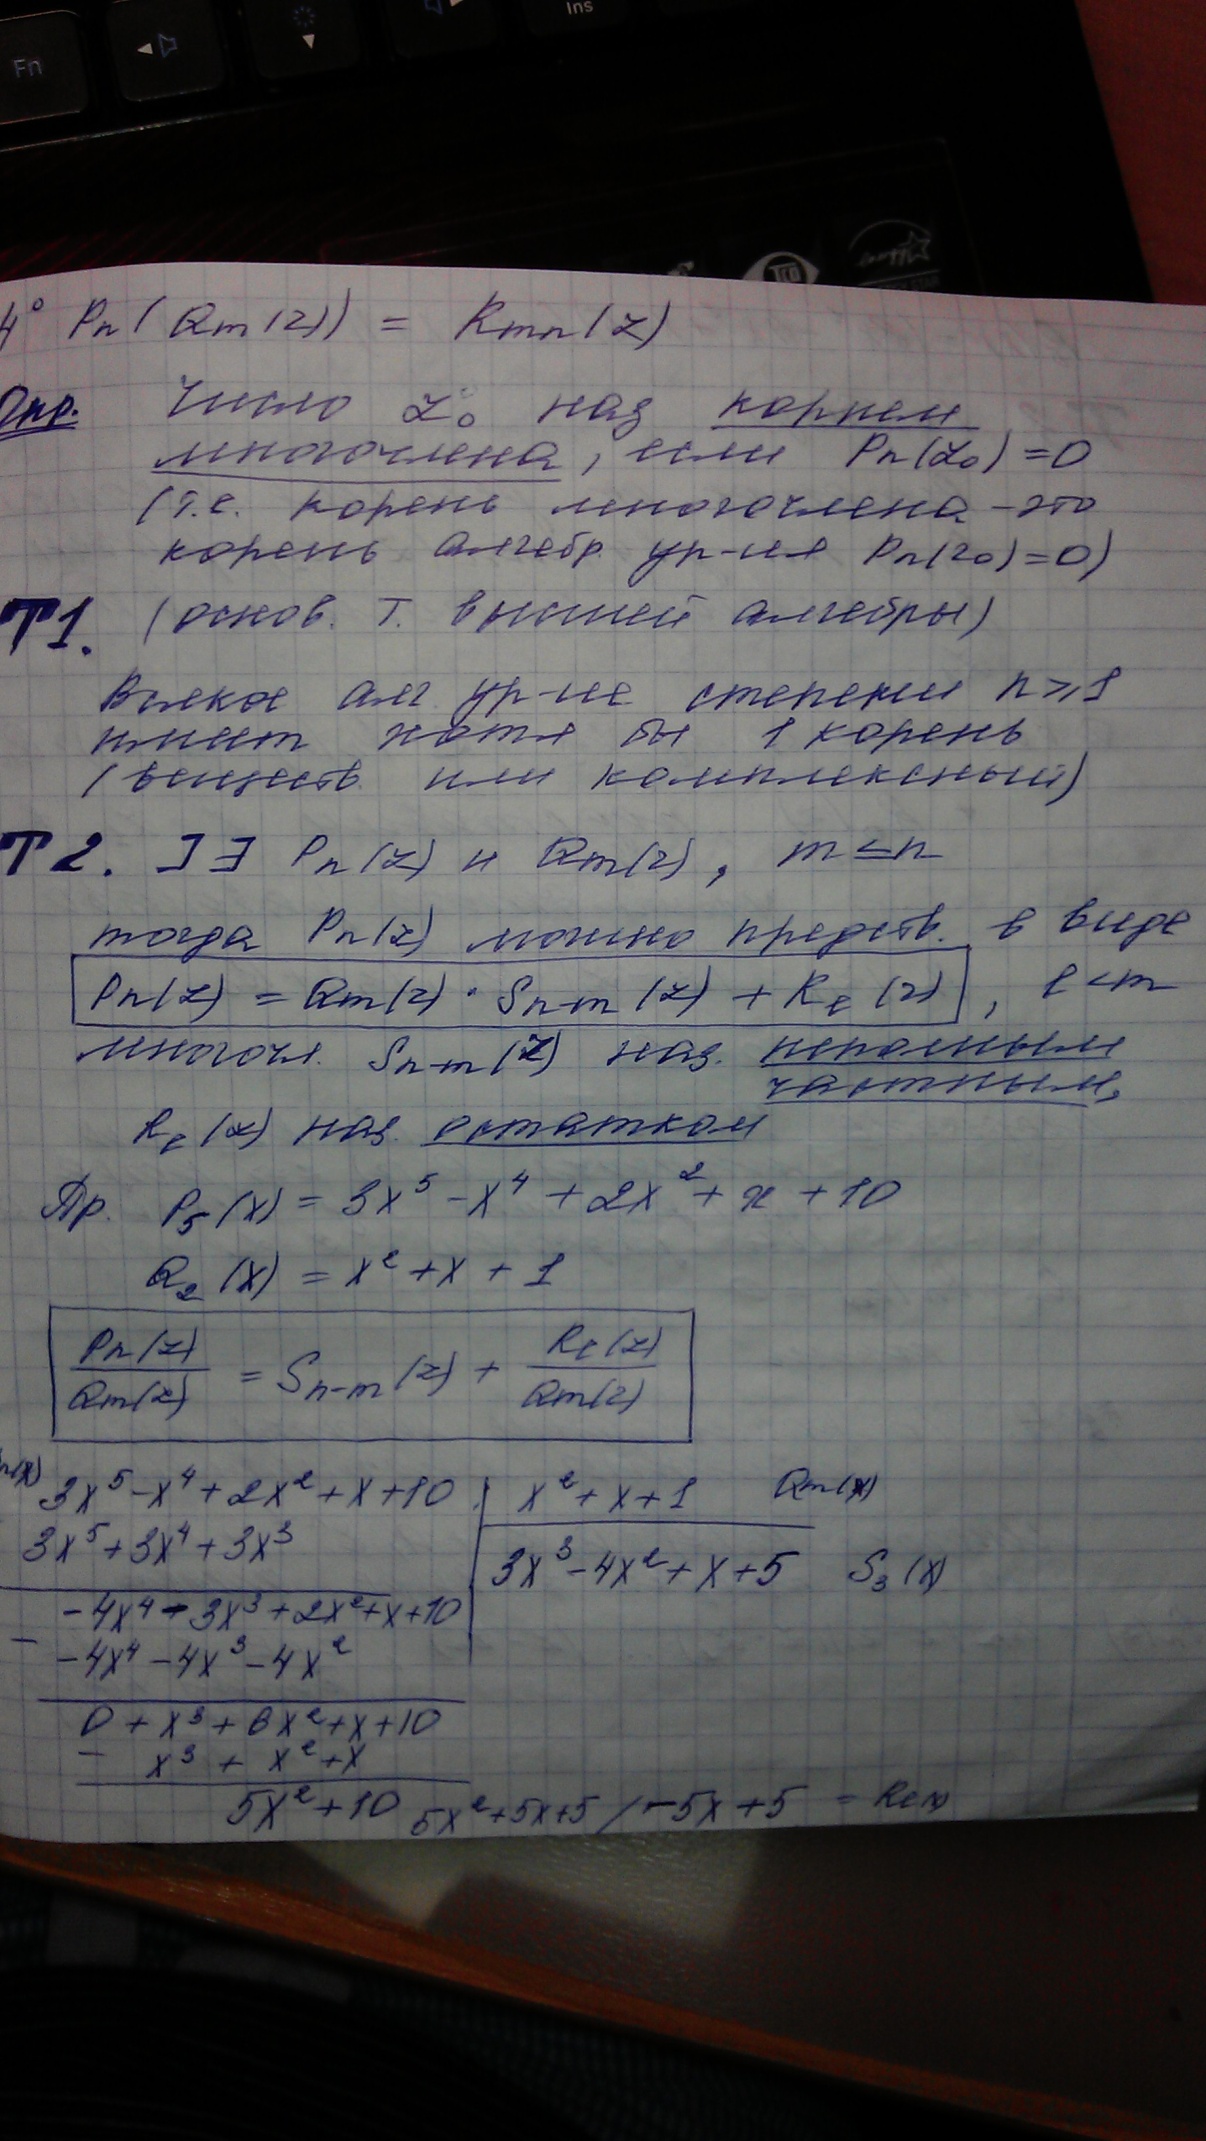 Fn
Ins
4° Pn(Qm(z)) = Rmn(z)
Опр. Число z₀ наз корнем
многочлена, если Pn(z₀)=0
(т.е. корень многочлена - это
корень алгебр. ур-ия Pn(z₀)=0)
Т1. (основ. т. высшей алгебры)
Всякое алг ур-ие степени n≥1
имеет хотя бы 1 корень
(веществ. или комплексный)
Т2. ]∃ Pn(z) и Qm(z), m≤n
тогда Pn(z) можно предств. в виде
Pn(z) = Qm(z) · Sn-m(z) + Rℓ(z), ℓ<m
многочл. Sn-m(z) наз. неполным
частным,
Rℓ(z) наз. остатком
Пр. P₅(x) = 3x⁵ - x⁴ + 2x² + x + 10
Q₂(x) = x² + x + 1
Pn(z)/Qm(z) = Sn-m(z) + Rℓ(z)/Qm(z)
3x⁵-x⁴+2x²+x+10 | x²+x+1 Qm(x)
3x⁵+3x⁴+3x³ | 3x³-4x²+x+5 S₃(x)
-4x⁴-3x³+2x²+x+10
- -4x⁴-4x³-4x²
0+x³+6x²+x+10
- x³+x²+x
5x²+10 5x²+5x+5 / -5x+5 =